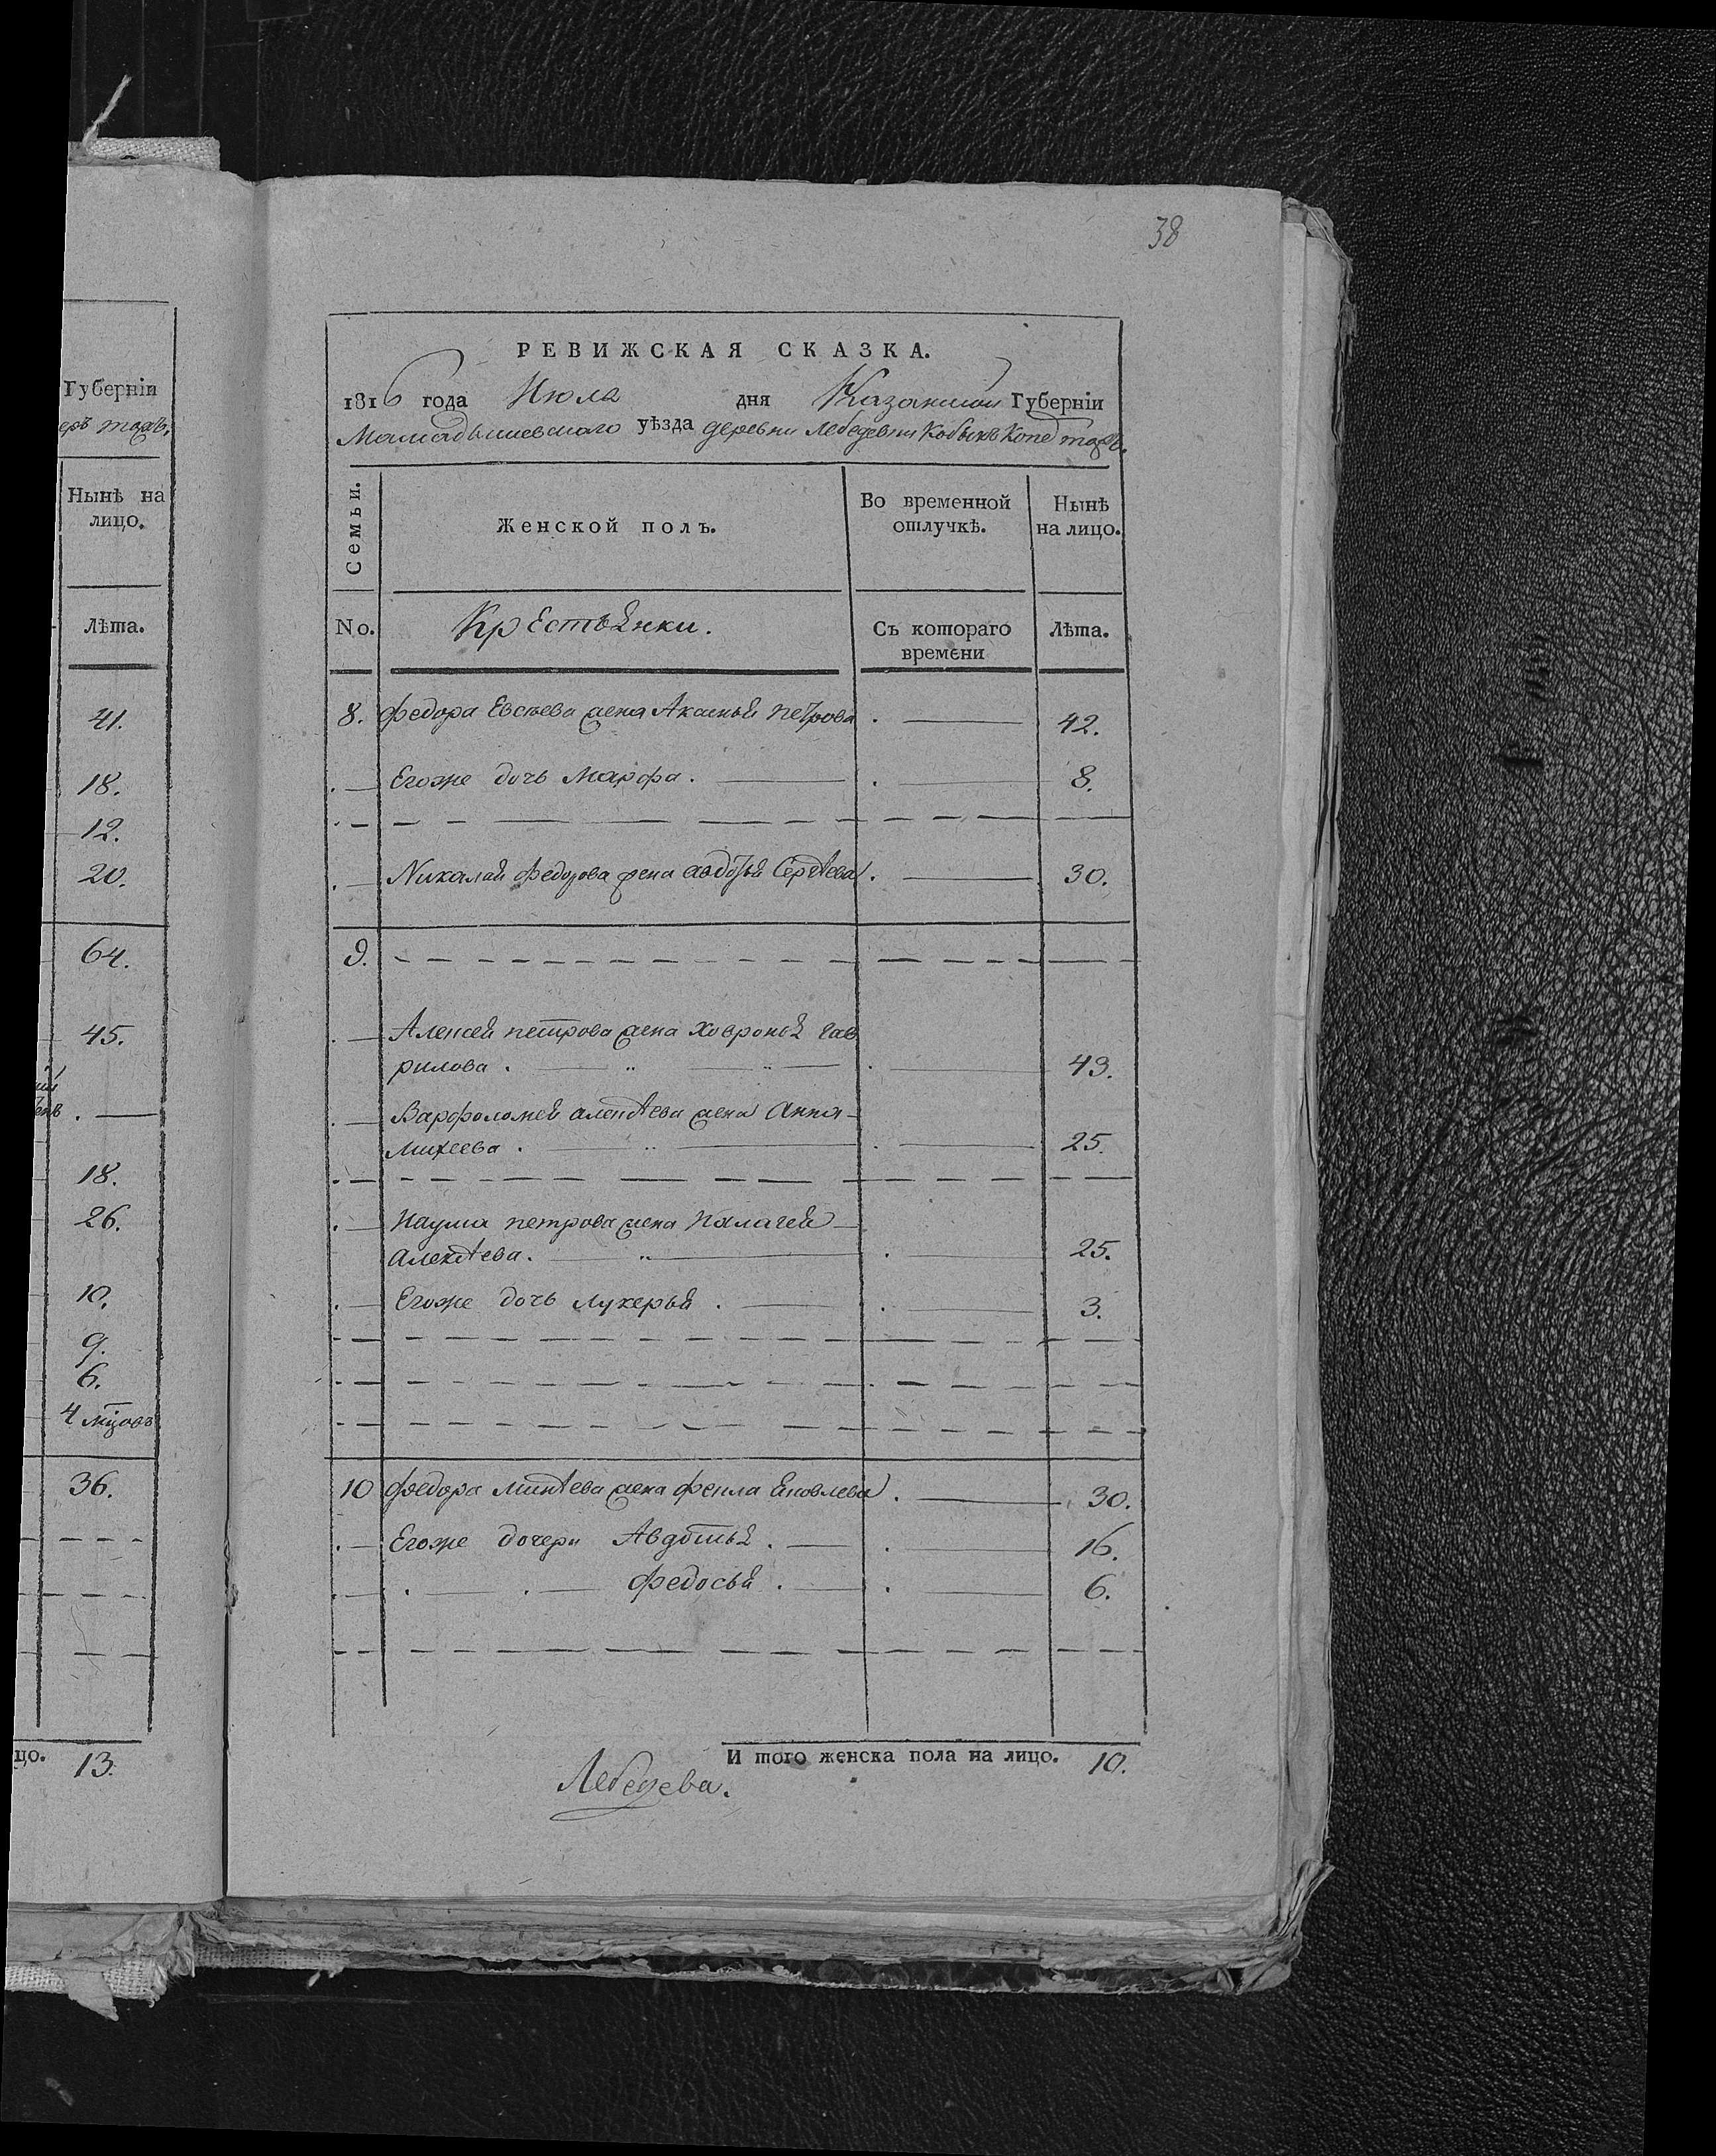 Губерніи
Нынѣ на
лицо.
Лѣта.
41.
18.
12.
20.
64.
45.
18.
26.
10.
9.
6.
4 мцовъ
36.
цо. 13.
38
РЕВИЖСКАЯ СКАЗКА.
1816 года Июля дня Казанской Губерніи
Мамадышевскаго уѣзда деревни Лебедевки
Семьи.
Женской полъ.
Во временной
отлучкѣ.
Нынѣ
на лицо.
No.
Крестьянки.
Съ котораго
времени
Лѣта.
8. Федора Евсѣева жена Аксинья Петрова . 42.
Егоже дочь Марфа . 8.
Николай Федорова жена Авдотья Сергѣева . 30.
9.
Алексей петрова жена Ховронья гав
рилова . 43.
Варфоломей алексѣева жена Анна
Михеева . 25.
Наума петрова жена Палагея
Алексѣева . 25.
Егоже дочь лукерья . 3.
10 Федора Микѣева жена Фекла Яковлева . 30.
Егоже дочери Авдотья . 16.
Федосья . 6.
И того женска пола на лицо. 10.
Лебедева.